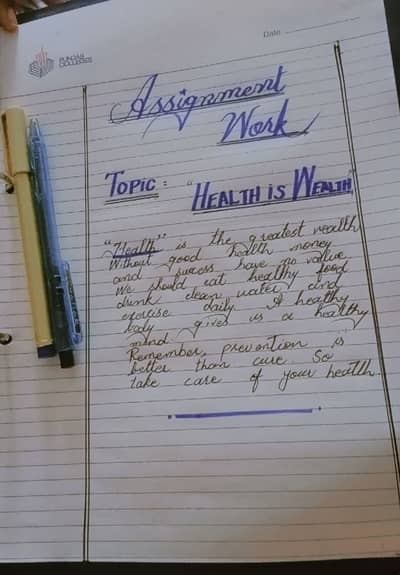 PUNJAB
COLLEGES
Date
Assignment
Work
TOPIC : "HEALTH IS WEALTH"
"Health" is the greatest wealth
Without good health money
and success have no vallue
We should eat healthy food
drink clean water and
exercise daily. A healthy
body gives us a healthy
mind
Remember, prevention is
better than cure. So
take care of your health.